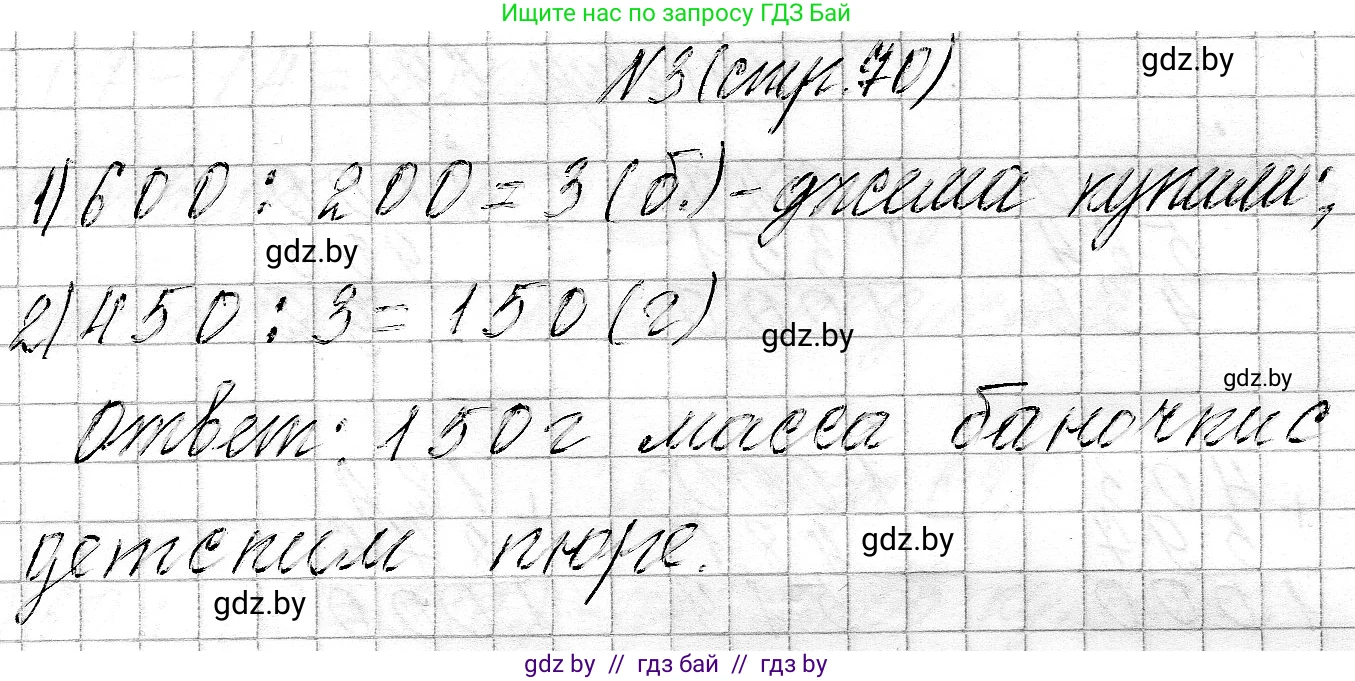 Ищите нас по запросу ГДЗ Бай
N3(стр.70)
gdz.by
1) 600 : 200 = 3 (б.) - джема купили;
gdz.by
2) 450 : 3 = 150 (г)
gdz.by
gdz.by
Ответ: 150 г масса баночки с
детским пюре.
gdz.by
gdz.by
gdz by // гдз бай // гдз by